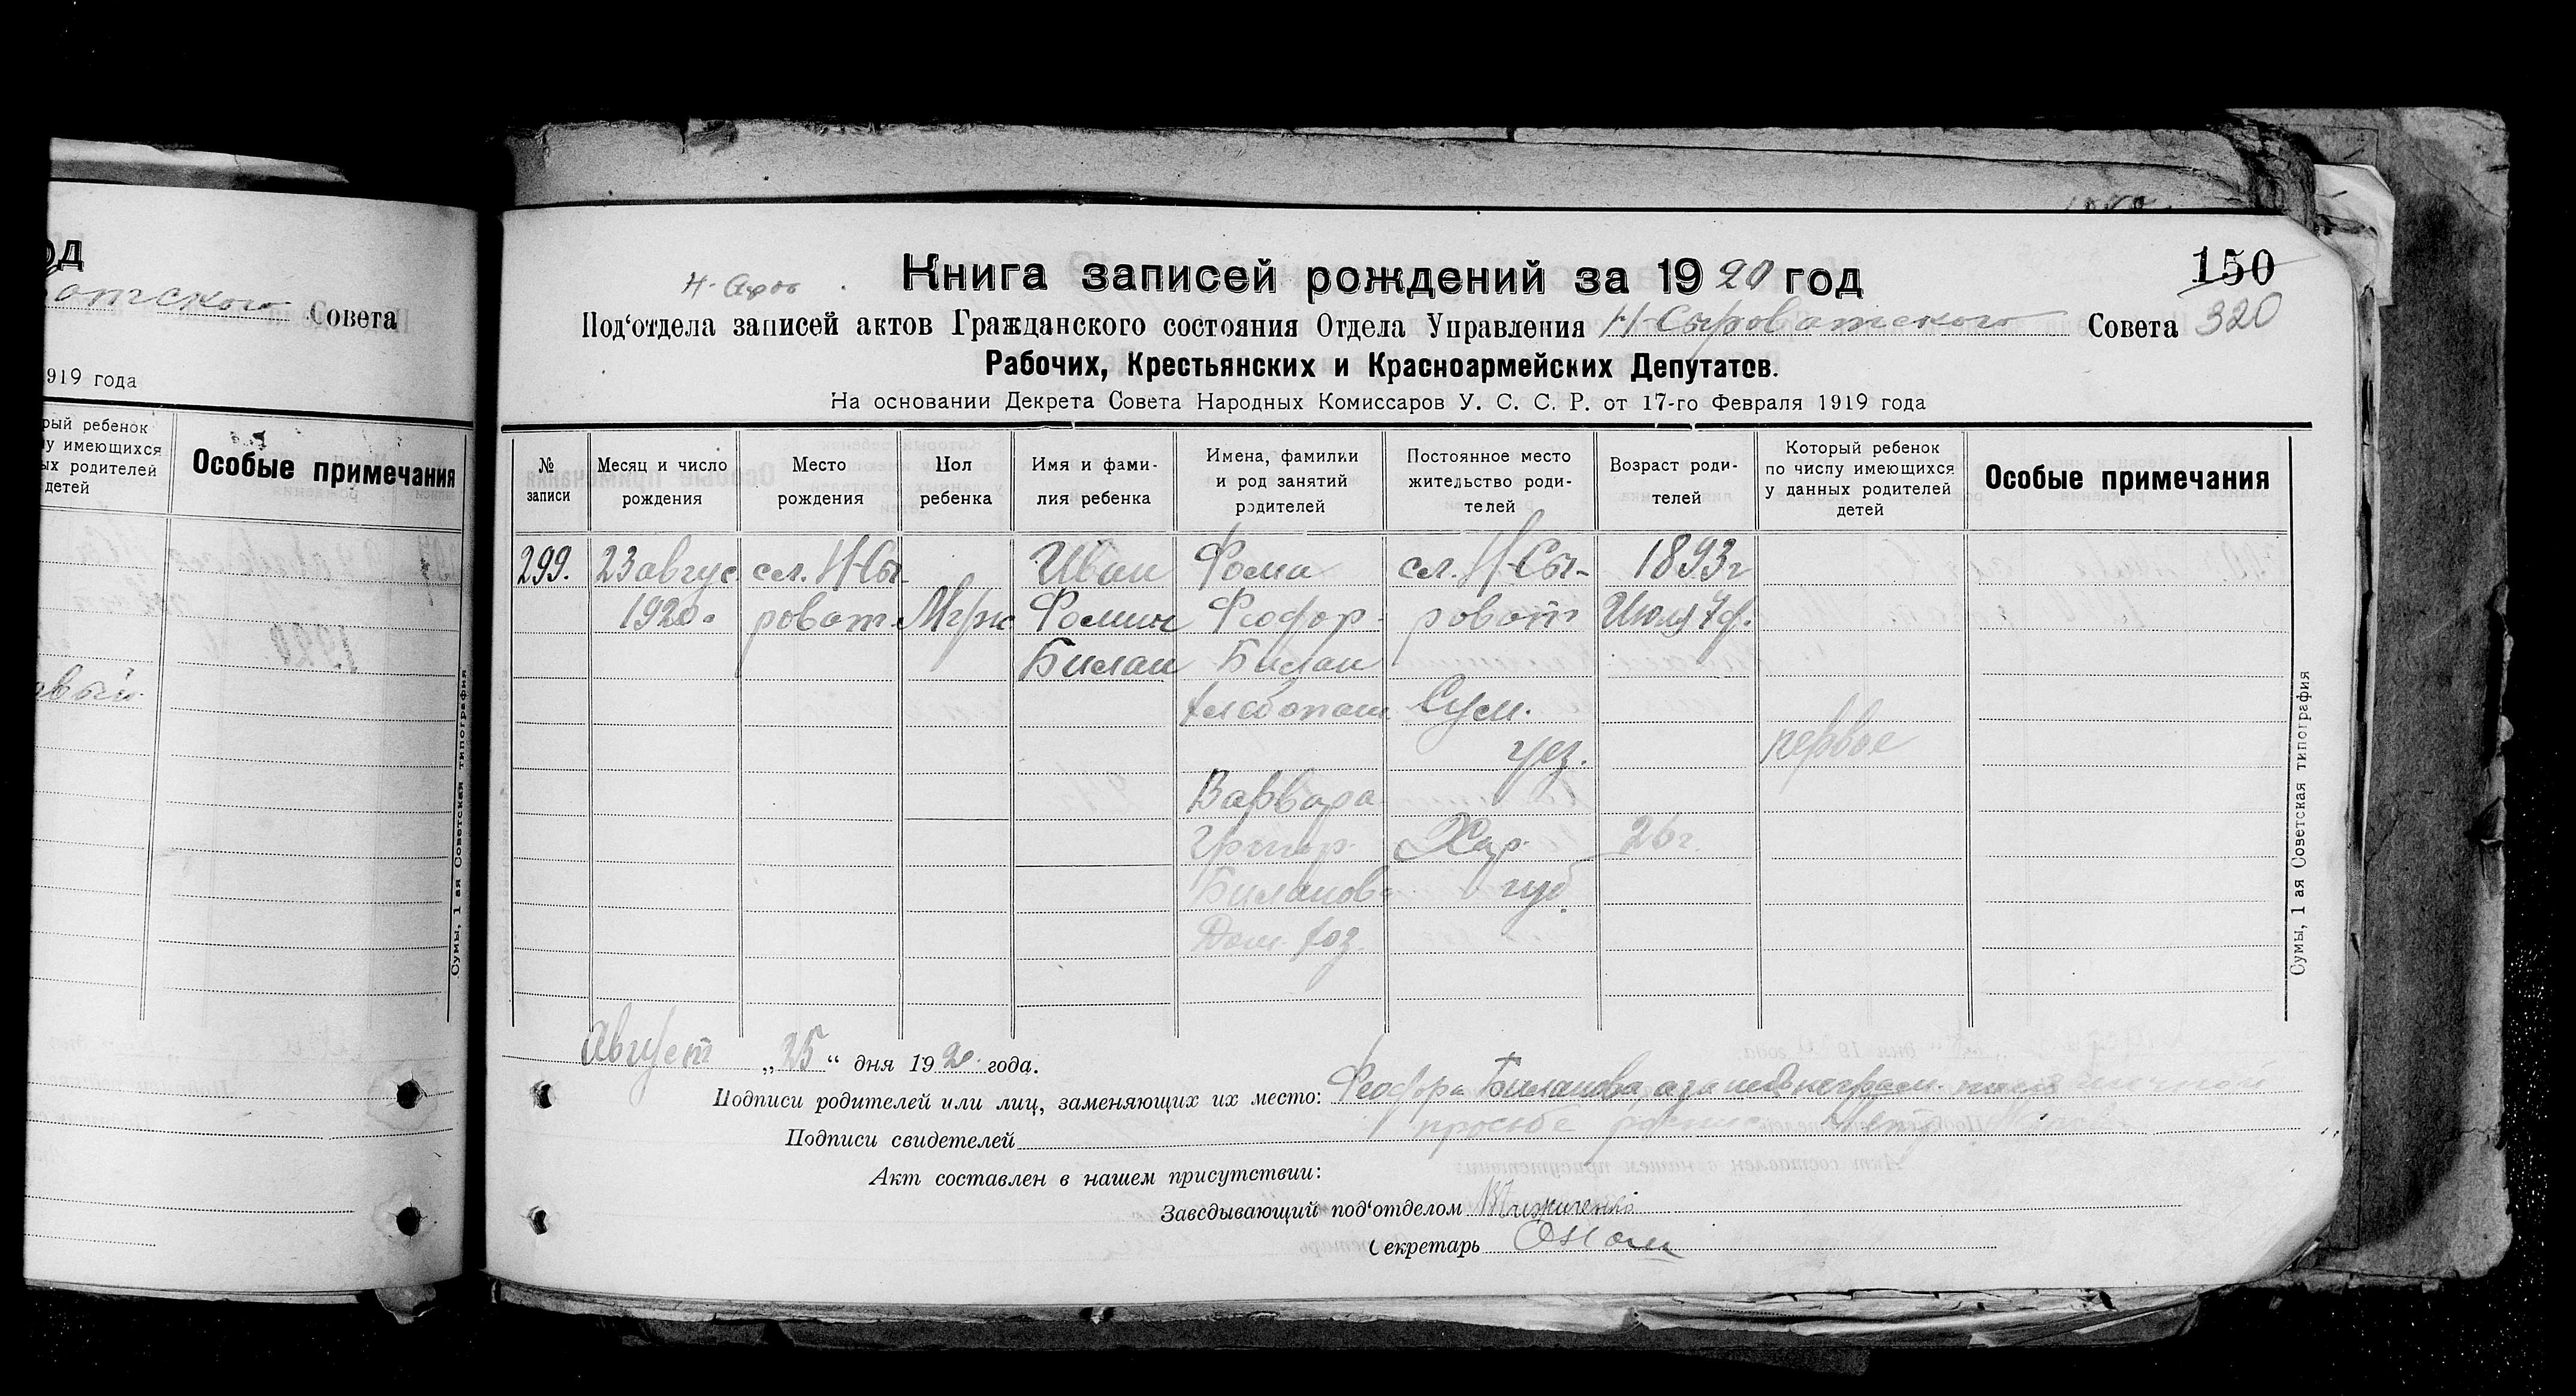 од
отского Совета
919 года
рый ребенок
у имеющихся
ых родителей
детей
Особые примечания
1920
вый
Сумы, 1 ая Советская типография
150
320
Книга записей рождений за 1920 год
Под'отдела записей актов Гражданского состояния Отдела Управления Н-Сыроватского Совета
Рабочих, Крестьянских и Красноармейских Депутатов.
На основании Декрета Совета Народных Комиссаров У. С. С. Р. от 17-го Февраля 1919 года
№ записи
Месяц и число рождения
Место рождения
Пол ребенка
Имя и фами-лия ребенка
Имена, фамилии и род занятий родителей
Постоянное место жительство роди-телей
Возраст роди-телей
Который ребенок по числу имеющихся у данных родителей детей
Особые примечания
299. 23 авгус сл. Н-Сы- Иван Фома сл. Н-Сы- 1893г
1920. роват. Мужс Фомич Феодор. роват Июля 7 ф.
Билан Билан
хлебопаш. Сум.
уез. первое
Варвара
Григор. Хар. 26 г.
Биланова губ.
Дом. хоз.
Август „25“ дня 1920 года.
Подписи родителей или лиц, заменяющих их место: Феодора Биланова, а за неё неграм. личной
Подписи свидетелей просьбе
Акт составлен в нашем присутствии:
Заведывающий под'отделом
Секретарь
Сумы, 1 ая Советская типография